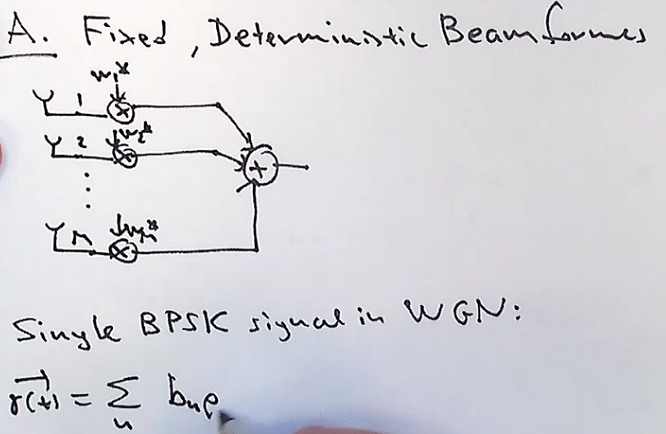 A. Fixed, Deterministic Beamformers
w₁*
1
w₂*
2
M wₘ*
Single BPSK signal in WGN:
r⃗(t) = Σₙ bₙe